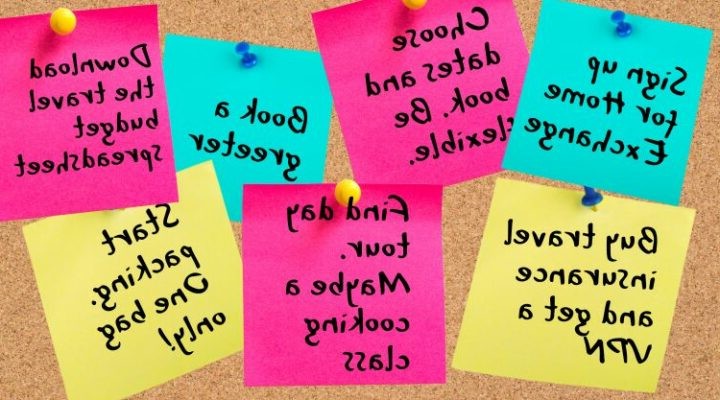 Download
the travel
budget
spreadsheet
Book a
greeter
Choose
dates and
book. Be
flexible.
Sign up
for Home
Exchange
Start
packing.
One bag
only!
Find day
tour.
Maybe a
cooking
class
Buy travel
insurance
and get a
VPN